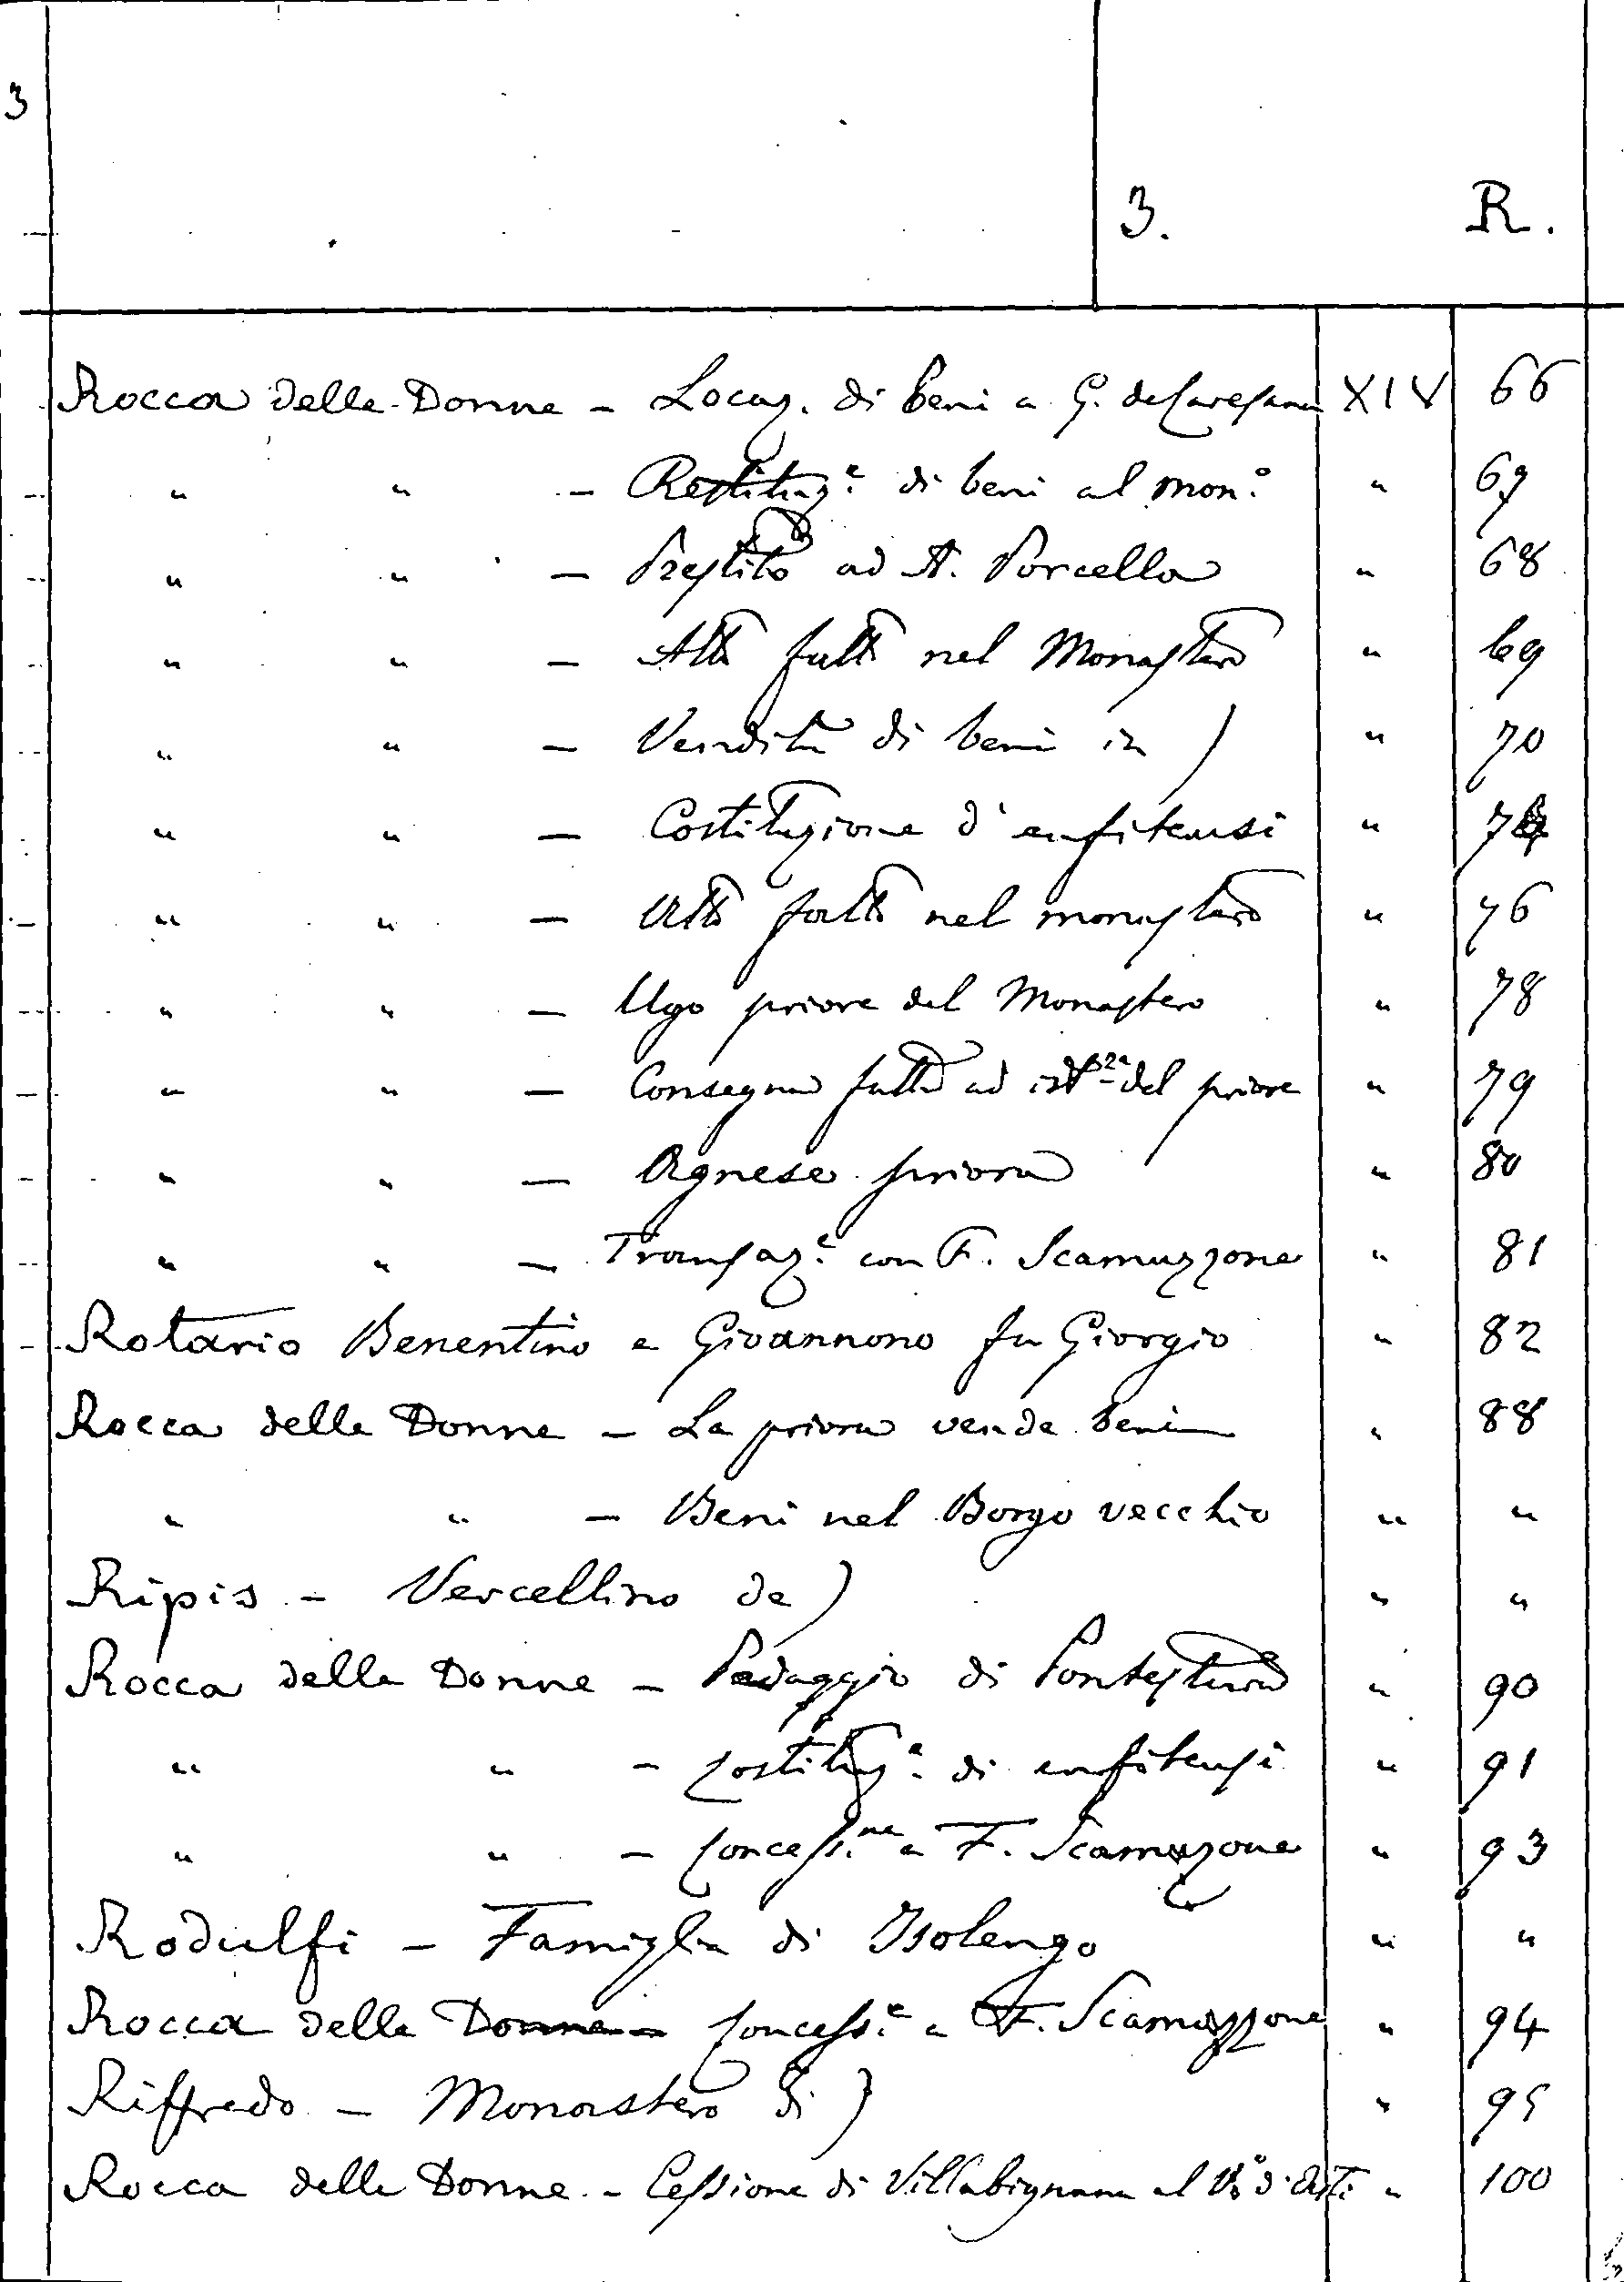 3
3. R.
Rocca delle Donne - Locaz. di beni a G. de Caresana XIV 66
" " - Restituz.e di beni al mon.o " 67
" " - Prestito ad A. Porcella " 68
" " - Atti fatti nel Monastero " 69
" " - Vendita di beni in ) " 70
" " - Costituzione d'enfiteusi "
" " - Atti fatti nel monastero " 76
" " - Ugo priore del Monastero " 78
" " - Consegna fatta ad ist.za del priore " 79
" " - Agnese priora " 80
" " - Transaz.e con F. Scamuzzone " 81
Rotario Benentino e Giovannono fu Giorgio " 82
Rocca delle Donne - La priora vende beni " 88
" " - Beni nel Borgo vecchio " "
Ripis - Vercellino de ) " "
Rocca delle Donne - Pedaggio di Pontestura " 90
" " - Costituz.e di enfiteusi " 91
" " - Concess.ne a F. Scamuzone " 93
Rodulfi - Famiglia di Isolengo " "
Rocca delle Donne - Concess.e a F. Scamuzzone " 94
Riffredo - Monastero di ) " 95
Rocca delle Donne - Cessione di Villabignana al V.o d'Asti " 100